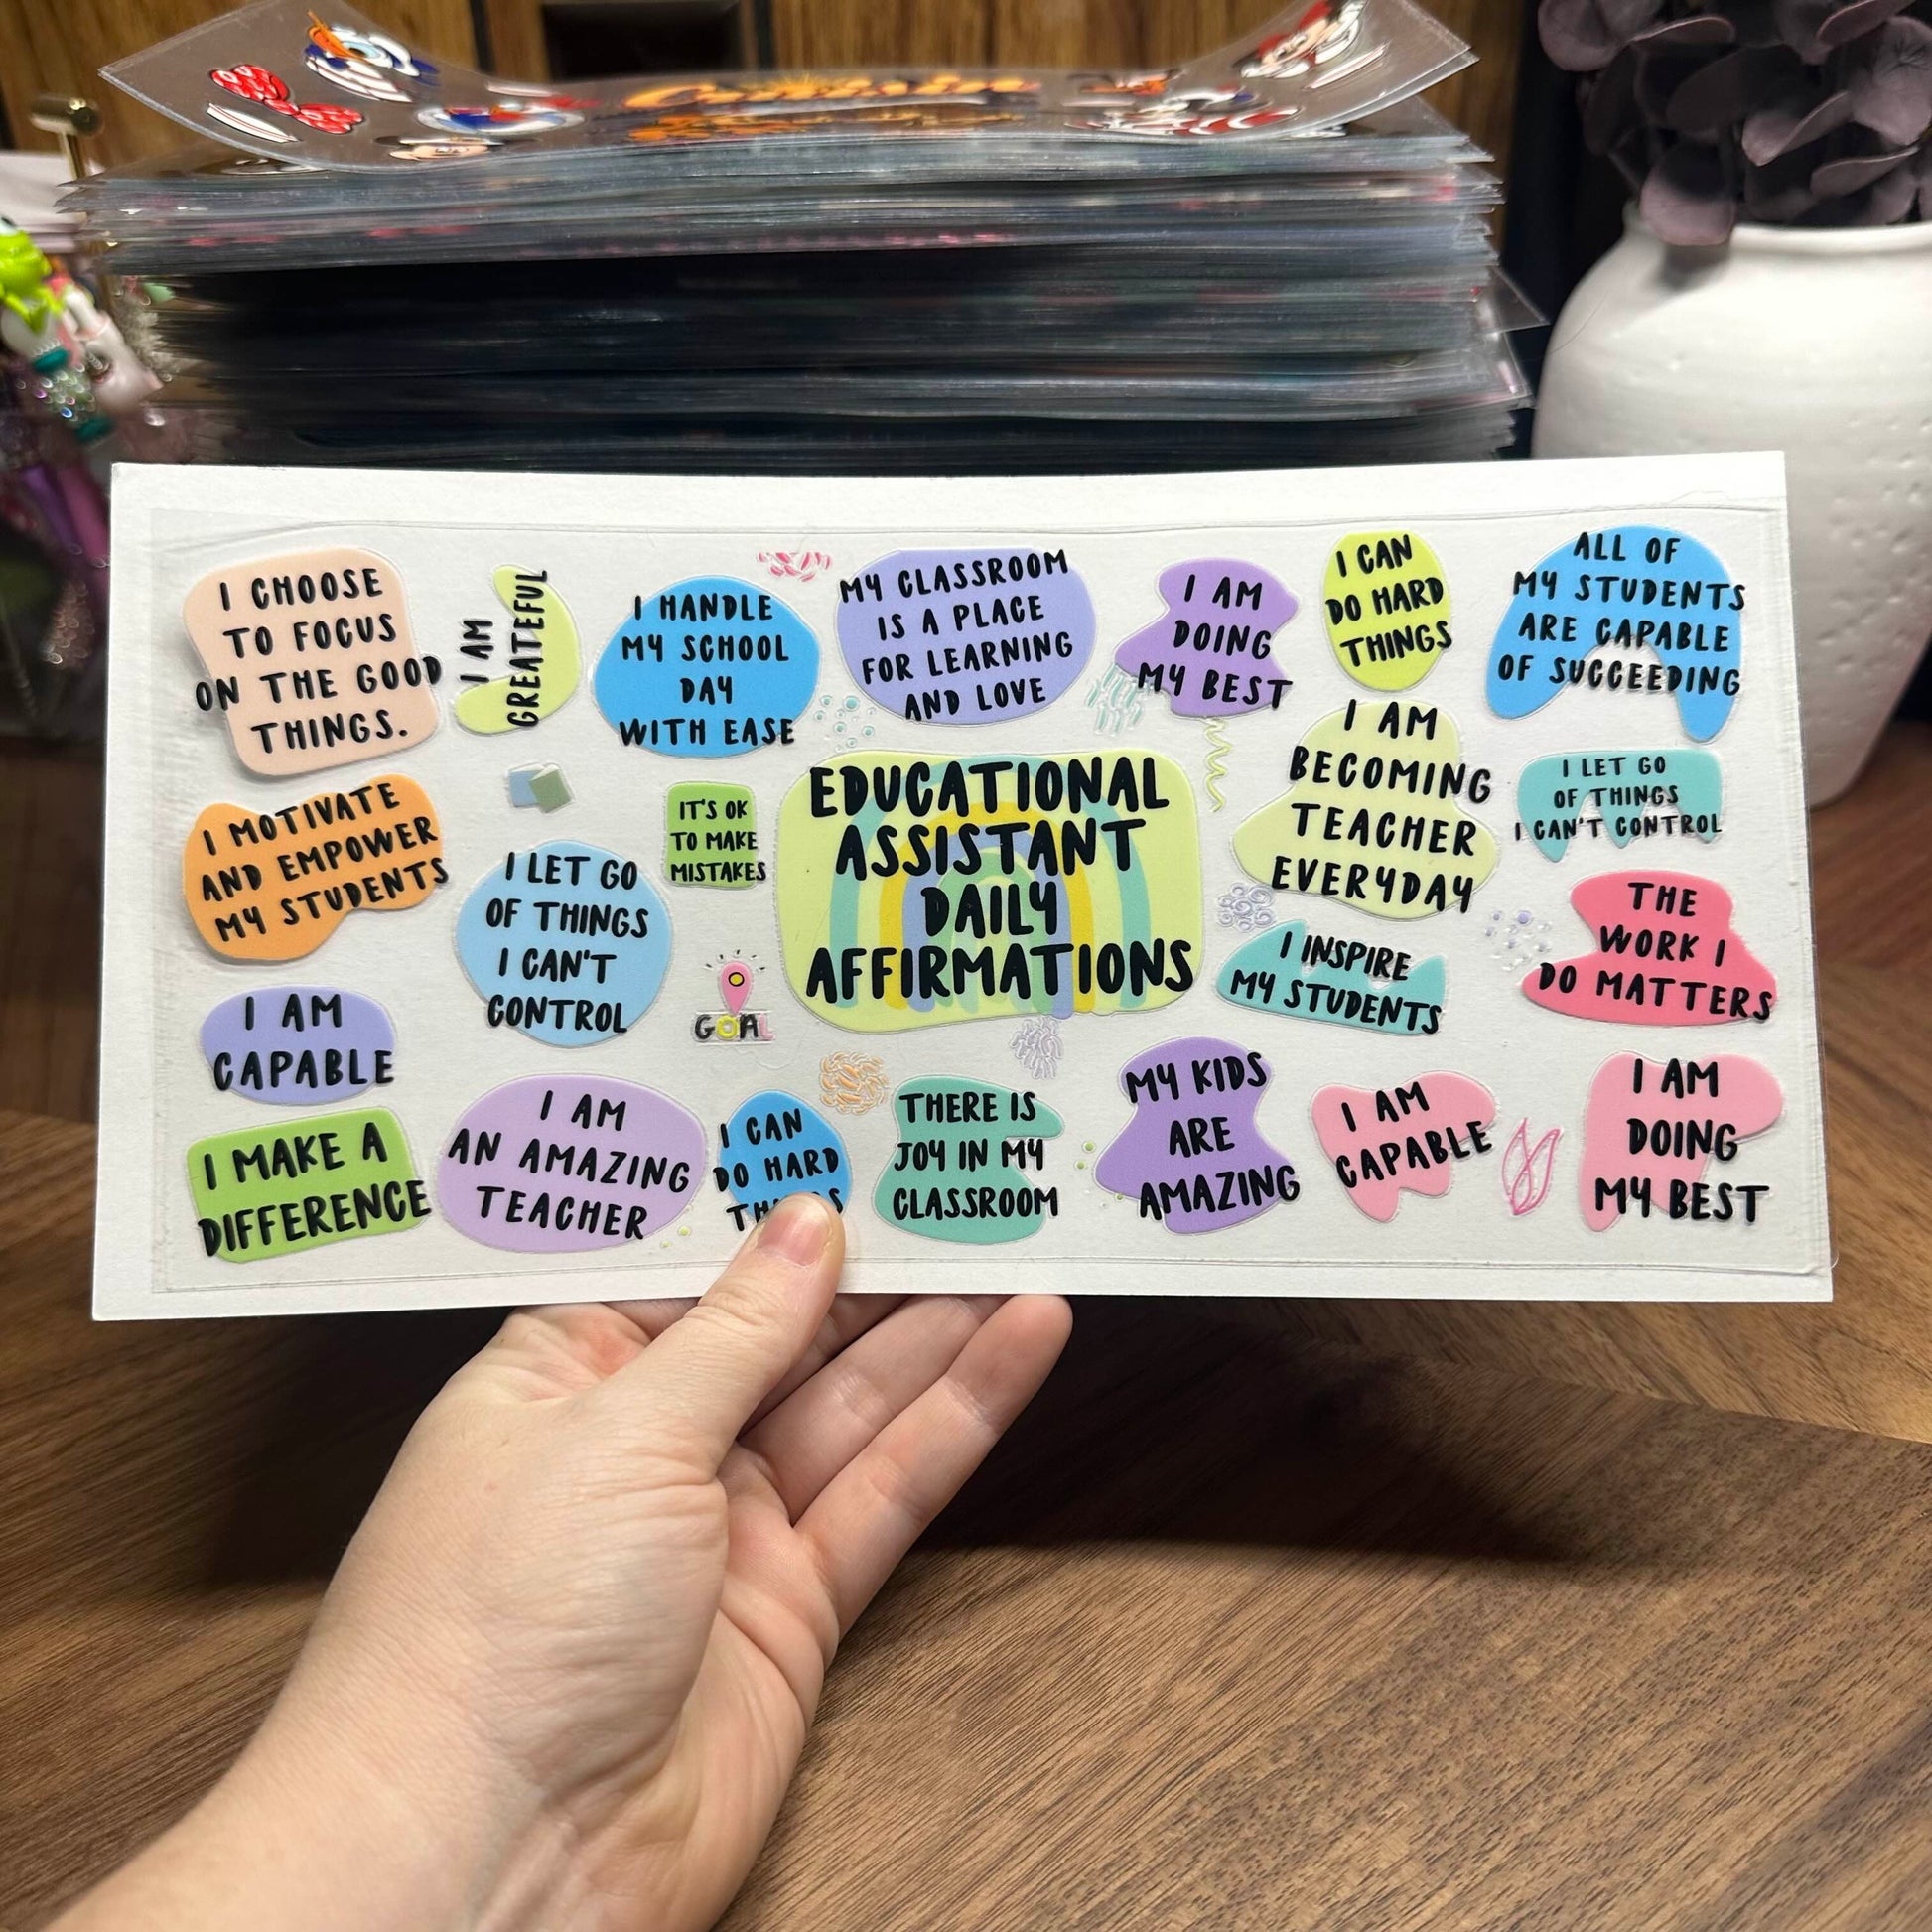 I CHOOSE
TO FOCUS
ON THE GOOD
THINGS.
I AM
GREATEFUL
I HANDLE
MY SCHOOL
DAY
WITH EASE
MY CLASSROOM
IS A PLACE
FOR LEARNING
AND LOVE
I AM
DOING
MY BEST
I CAN
DO HARD
THINGS
ALL OF
MY STUDENTS
ARE CAPABLE
OF SUCCEEDING
I MOTIVATE
AND EMPOWER
MY STUDENTS
I LET GO
OF THINGS
I CAN'T
CONTROL
IT'S OK
TO MAKE
MISTAKES
EDUCATIONAL
ASSISTANT
DAILY
AFFIRMATIONS
I AM
BECOMING
TEACHER
EVERYDAY
I LET GO
OF THINGS
I CAN'T CONTROL
I INSPIRE
MY STUDENTS
THE
WORK I
DO MATTERS
I AM
CAPABLE
GOAL
I MAKE A
DIFFERENCE
I AM
AN AMAZING
TEACHER
I CAN
DO HARD
THERE IS
JOY IN MY
CLASSROOM
MY KIDS
ARE
AMAZING
I AM
CAPABLE
I AM
DOING
MY BEST